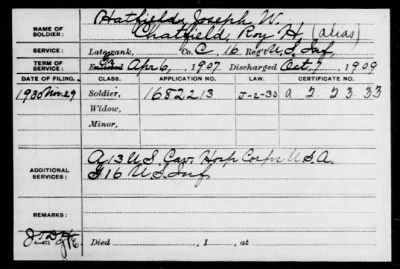 NAME OF SOLDIER: Hatfield, Joseph W.
Chatfield, Roy H. (alias)
SERVICE: Late rank, Co. C, 16 Reg't U.S. Inf.
TERM OF SERVICE: Enlisted Apr 6, 1907. Discharged Oct. 7, 1909
DATE OF FILING. CLASS. APPLICATION NO. LAW. CERTIFICATE NO.
1930 Nov. 29 Soldier, 1682213 J-2-30 a 2 5 2 3 33
Widow,
Minor,
ADDITIONAL SERVICES: A 13 U.S. Cav. Hosp Corps U.S.A.
G 16 U.S. Inf.
REMARKS:
Died , 1 , at